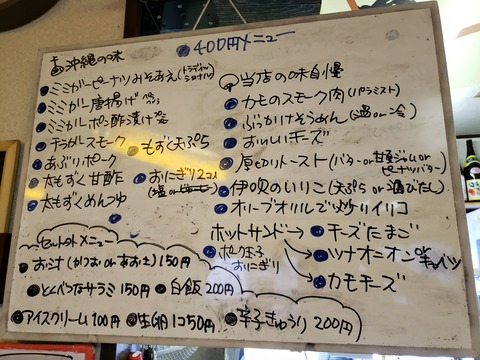 沖縄の味
400円メニュー
ミミガーピーナツみそあえ(トラディショナル)
ミミガー唐揚げ
ミミガーポン酢漬け
テラガルスモーク
もずく天ぷら
あぶりポーク
太もずく甘酢
おにぎり2コ
太もずくめんつゆ
当店の味自慢
カモのスモーク肉(パストラミ)
ぶっかけそうめん(温or冷)
おいしいチーズ
厚切りトースト(バター or 甘夏ジャム or ピーナツバター)
伊吹のいりこ(天ぷら or 酒びたし)
オリーブオイルで炒りイリコ
ホットサンド
チーズたまご
ポーク玉子おにぎり
ツナオニオンキャベツ
カモチーズ
セットのメニュー
お汁(かつお or あおさ)150円
とくべつなサラミ 150円
白飯 200円
アイスクリーム 100円
生卵 1コ50円
辛子きゅうり 200円